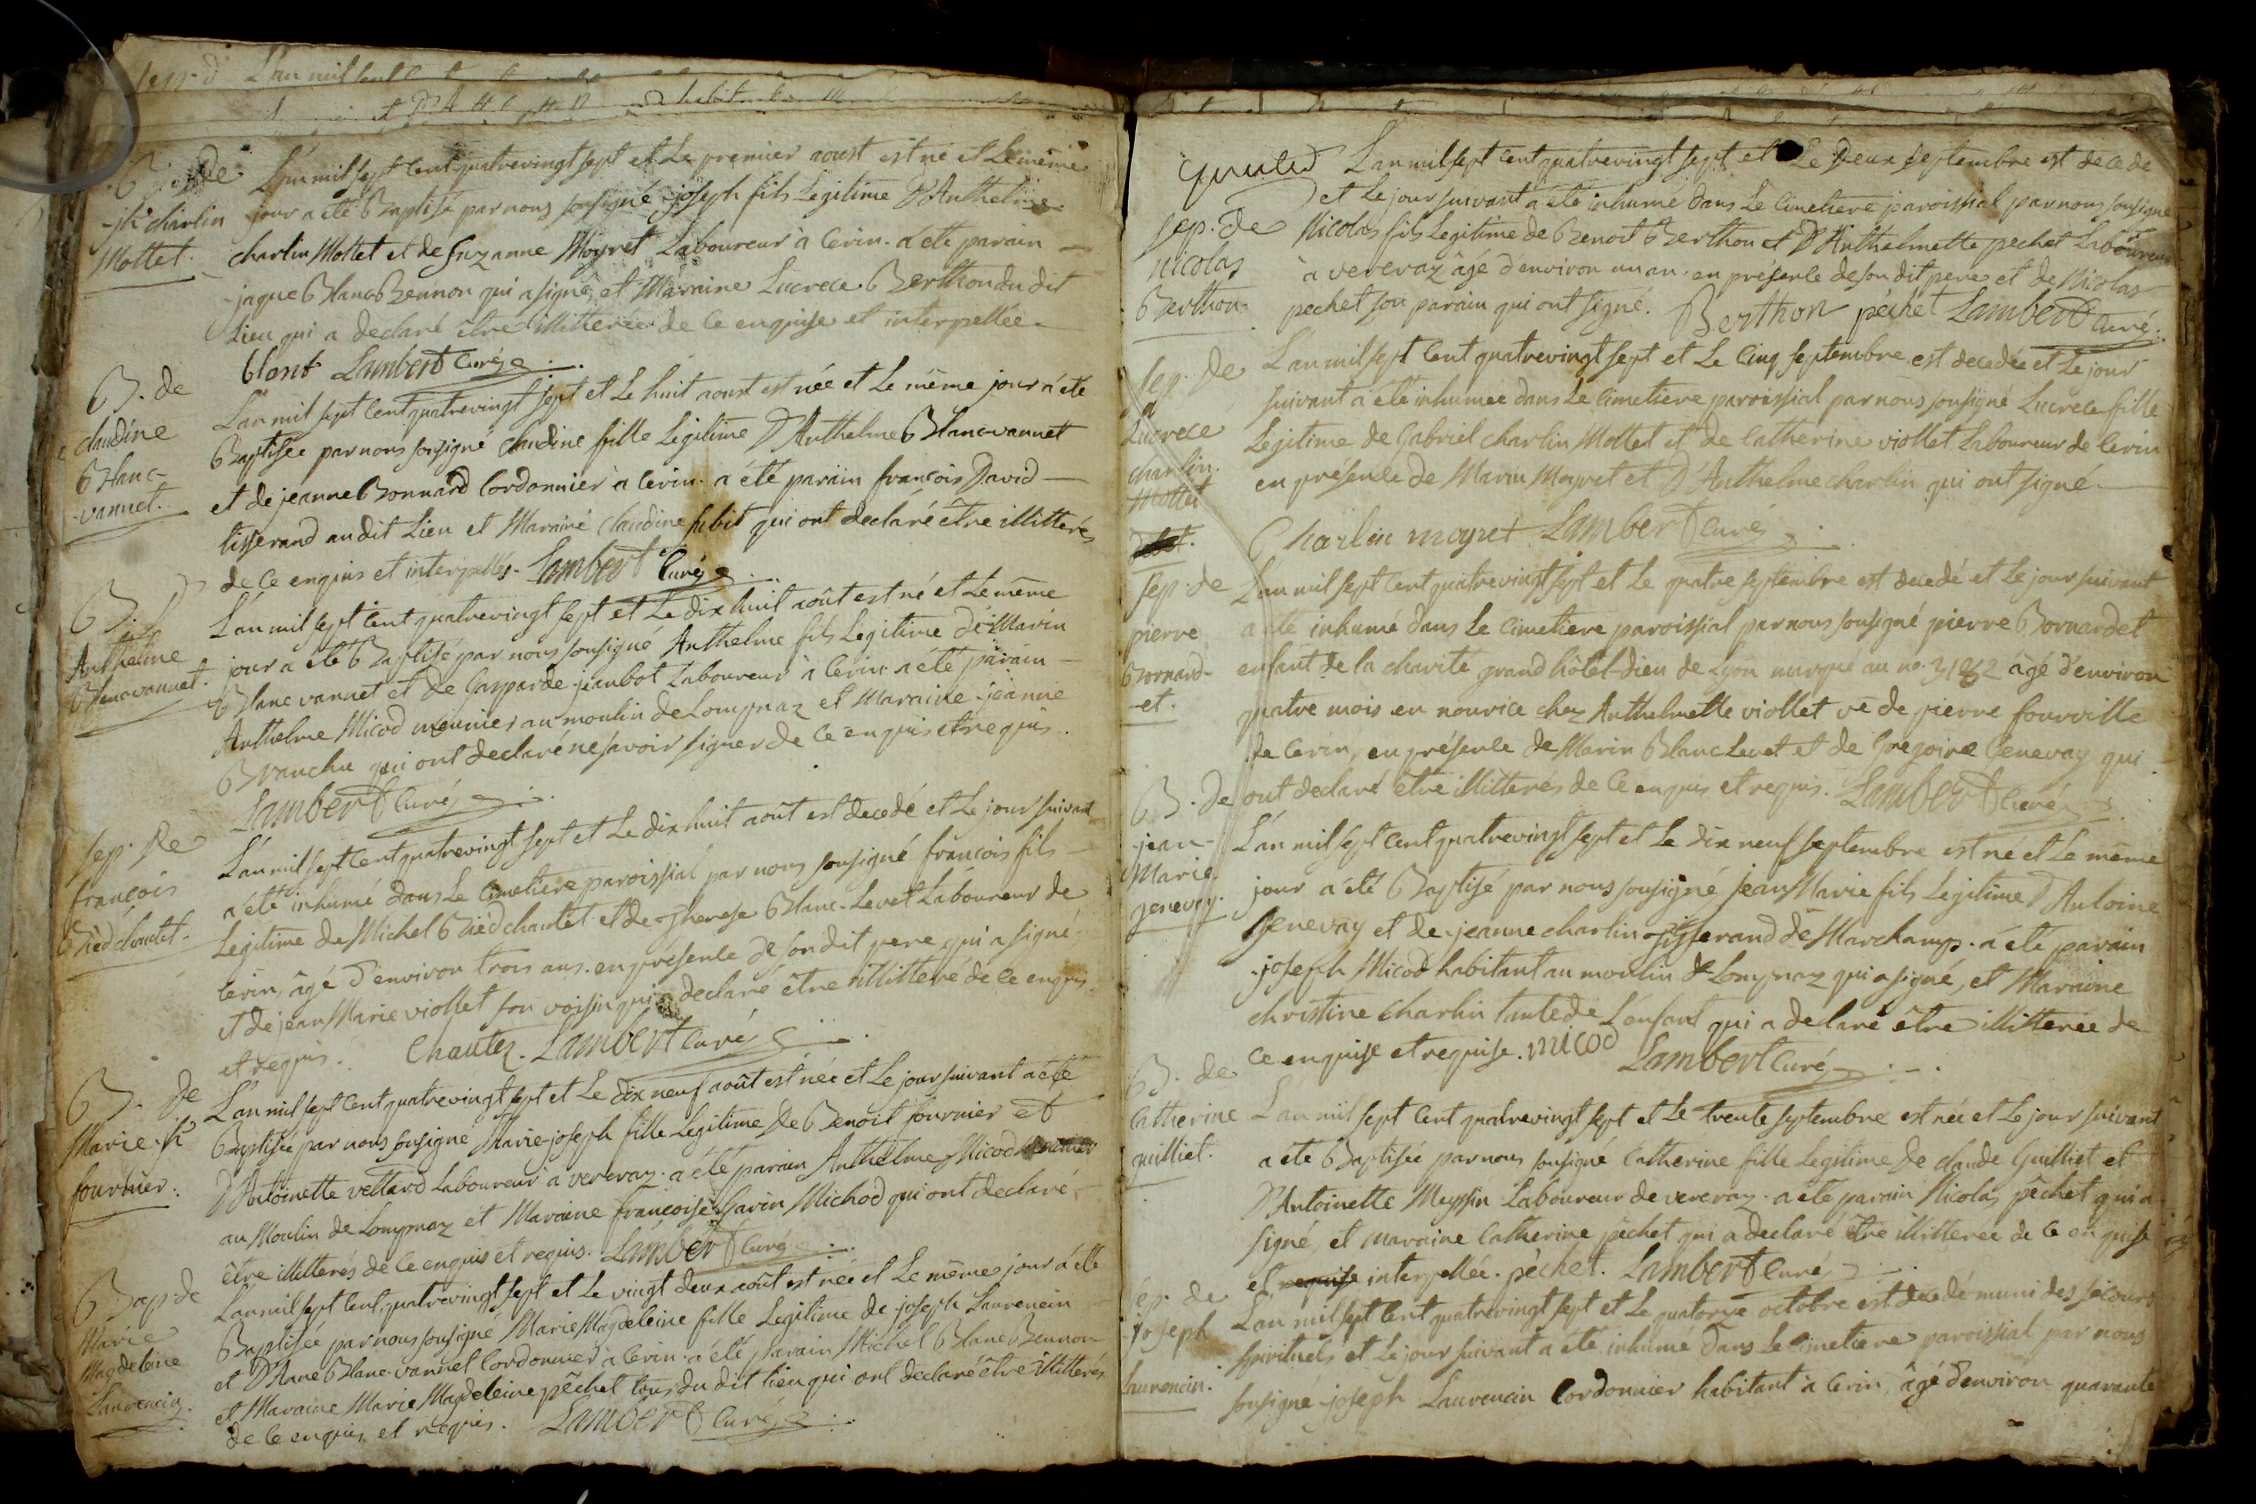 sep. d L'an mil sept cent
B. de
jh charlin
Mottet.
L'an mil sept cent quatrevingt sept et Le premier aoust est né et Le même
jour a été Baptisé par nous sousigné joseph fils Legitime D'Anthelme
charlin Mottet et de Suzanne Moyret Laboureur à Cerin. a été parain
jaque Blanc Bennon qui a signé, et Maraine Lucrece Berthon du dit
Lieu qui a declaré être illitterée de ce enquise et interpellée.
blanc Lambert Curé
B. de
claudine
Blanc-
vannet.
L'an mil sept cent quatrevingt sept et Le huit aoust est née et Le même jour a été
Baptisée par nous sousigné claudine fille Legitime D'Anthelme Blanc-vannet
et de jeanne Bonnard Cordonnier à Cerin. a été parain francois David
tisserand au dit Lieu et Maraine Claudine subit qui ont declaré être illitterés
de ce enquis et interpellés. Lambert Curé
B. D
Anthelme
Blancvannet.
L'an mil sept cent quatrevingt sept et Le dix huit août est né et Le même
jour a été Baptisé par nous sousigné Anthelme fils Legitime de Marin
Blanc vannet et de Gasparde jeanbot Laboureur à Cerin. a été parain
Anthelme Micod meunier au moulin de Lompnaz et Maraine jeanne
Branche qui ont declaré ne savoir signer de ce enquis et requis.
Lambert Curé
sep. de
francois
Bied chautet.
L'an mil sept cent quatrevingt sept et Le dix huit août est decedé et Le jour suivant
a été inhumé dans Le Cimetiere paroissial par nous sousigné francois fils
Legitime de Michel Bied chautet et de Therese Blanc-Levet Laboureur de
Cerin, âgé d'environ trois ans. en présence de son dit pere qui a signé,
et de jean Marie viollet son voisin qui a declaré être illitteré de ce enquis
et requis. Chautez. Lambert Curé
B. de
Marie jh
fournier.
L'an mil sept cent quatrevingt sept et Le dix neuf août est née et Le jour suivant a été
Baptisée par nous sousigné Marie joseph fille Legitime de Benoit fournier et
D'Antoinette vettard Laboureur à vereraz. a été parain Anthelme Micod meunier
au Moulin de Lompnaz et Maraine francoise Savin Michod qui ont declaré
être illitterés de ce enquis et requis. Lambert Curé
Bap. de
Marie
Magdeleine
Laurencin.
L'an mil sept cent quatrevingt sept et Le vingt deux août est née et Le même jour a été
Baptisée par nous sousigné Marie Magdeleine fille Legitime de joseph Laurencin
et D'Anne Blanc-vannet Cordonnier à Cerin. a été parain Michel Blanc Bennon
et Maraine Marie Magdeleine pêchet tous du dit Lieu qui ont declaré être illitterés
de ce enquis et requis. Lambert Curé
sep. de
Nicolas
Berthon.
L'an mil sept cent quatrevingt sept et Le Deux septembre est decedé
et Le jour suivant a été inhumé dans Le Cimetiere paroissial par nous sousigné
Nicolas fils Legitime de Benoit Berthon et D'Anthelmette pechet Laboureur
à vereraz âgé d'environ un an. en présence de son dit pere et de Nicolas
pechet son parain qui ont signé. Berthon pêchet Lambert Curé.
sep. de
Lucrece
charlin
Mottet
L'an mil sept cent quatrevingt sept et Le Cinq septembre est decedée et Le jour
suivant a été inhumée dans Le Cimetiere paroissial par nous sousigné Lucrece fille
Legitime de Gabriel charlin Mottet et de Catherine viollet Laboureur de Cerin
en présence de Marin Moyret et D'Anthelme charlin qui ont signé.
Charlin moyret Lambert Curé
sep. de
pierre
Bornard-
-et.
L'an mil sept cent quatrevingt sept et Le quatre septembre est decedé et Le jour suivant
a été inhumé dans Le Cimetiere paroissial par nous sousigné pierre Bornardet
enfant de la charité grand hôtel-Dieu de Lyon marqué au no. âgé d'environ
quatre mois en nourice chez Anthelmette viollet ve de pierre fourville
de Cerin, en présence de Marin Blanc Levet et de Gregoire Genevay qui
ont declaré être illitterés de ce enquis et requis. Lambert Curé
B. de
jean-
Marie
Jenevay.
L'an mil sept cent quatrevingt sept et Le dix neuf septembre est né et Le même
jour a été Baptisé par nous sousigné jean Marie fils Legitime D'Antoine
Jenevay et de jeanne charlin Tisserand de Marchamp. a été parain
joseph Micod habitant au moulin de Lompnaz qui a signé, et Maraine
christine Charlin tante de L'enfant qui a declaré être illitterée de
ce enquise et requise. micod Lambert Curé
B. de
Catherine
guilliet.
L'an mil sept cent quatrevingt sept et Le trente septembre est née et Le jour suivant
a été Baptisée par nous sousigné Catherine fille Legitime de claude Guilliet et
D'Antoinette Meyssin Laboureur de vereraz. a été parain Nicolas pêchet qui a
signé, et maraine Catherine pechet qui a declaré être illitterée de ce enquise
et requise interpellée. pêchet. Lambert Curé
sép. de
joseph
Laurencin.
L'an mil sept cent quatrevingt sept et Le quatorze octobre est decedé muni des secours
spirituels et Le jour suivant a été inhumé dans Le Cimetiere paroissial par nous
sousigné joseph Laurencin Cordonnier habitant à Cerin, âgé d'environ quarante